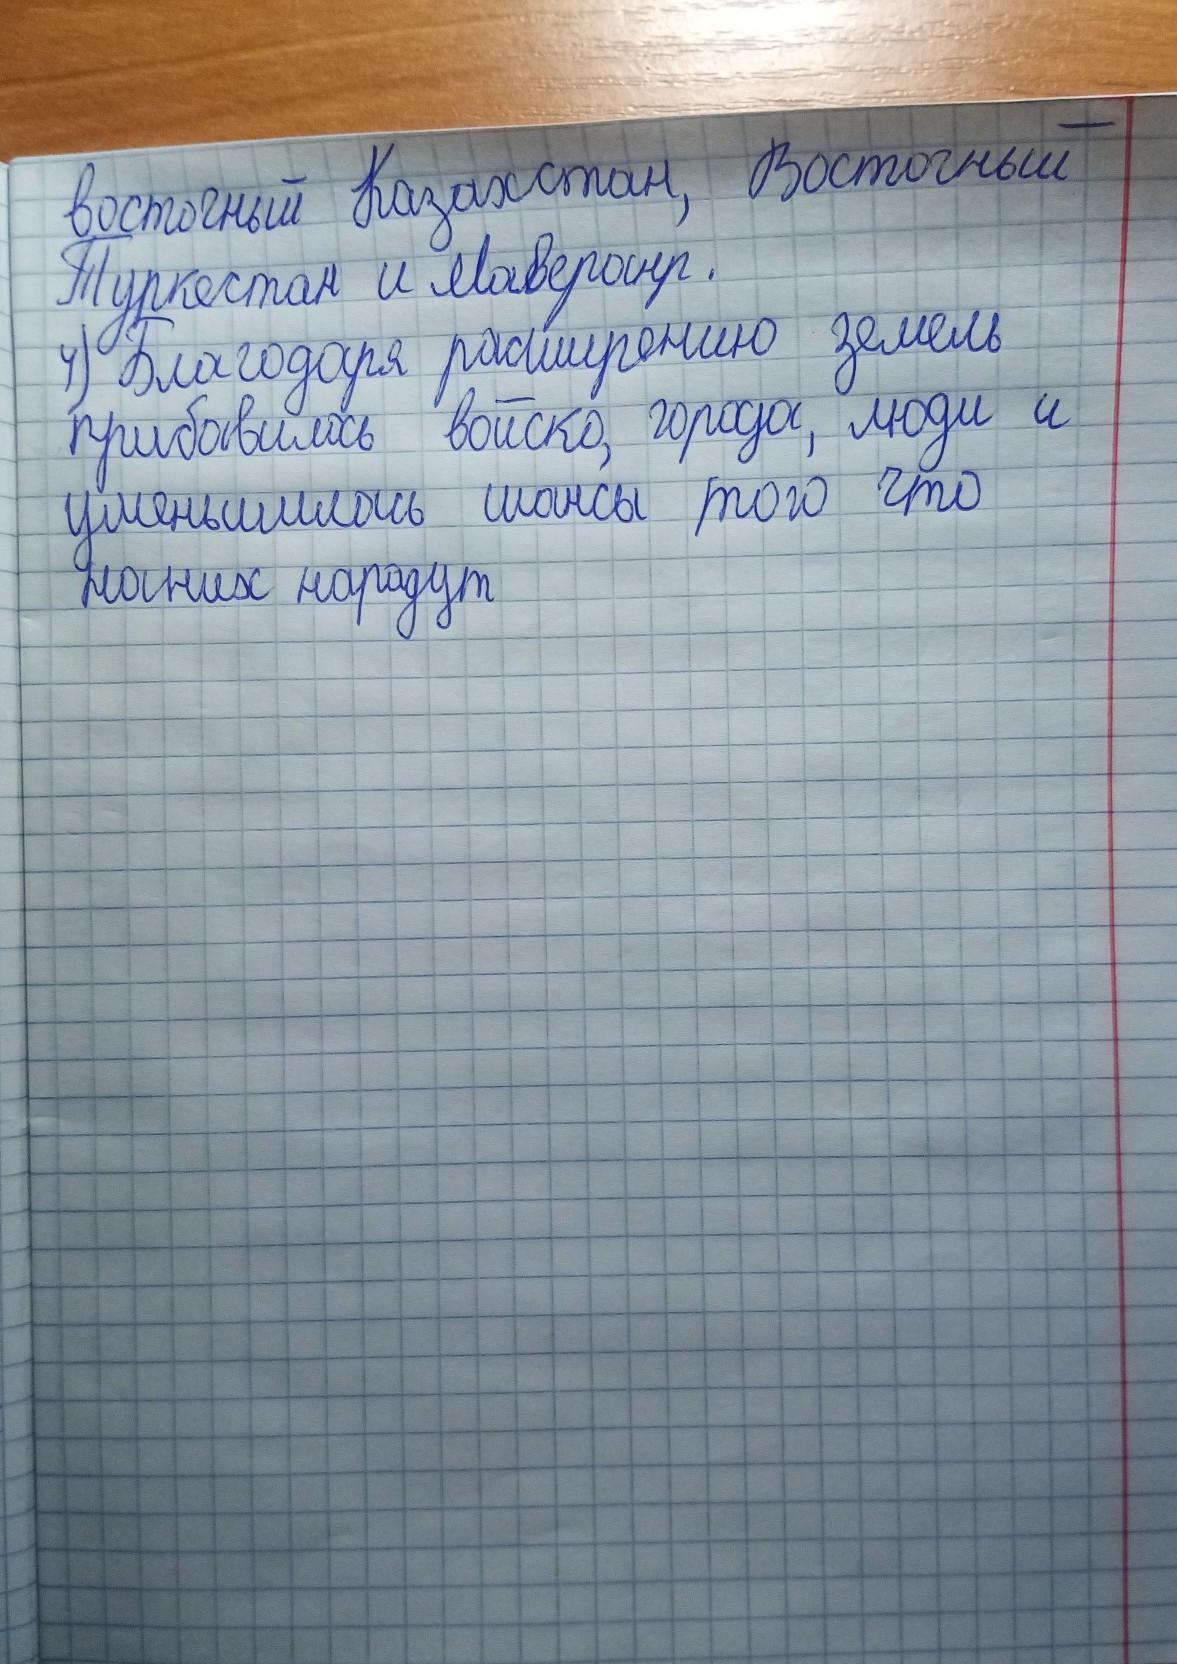 восточный Казахстан, Восточный
Туркестан и Мавероннр.
4) Благодаря расширению земель
прибавилось войско, города, люди и
уменьшилось шансы того что
наних нарадут